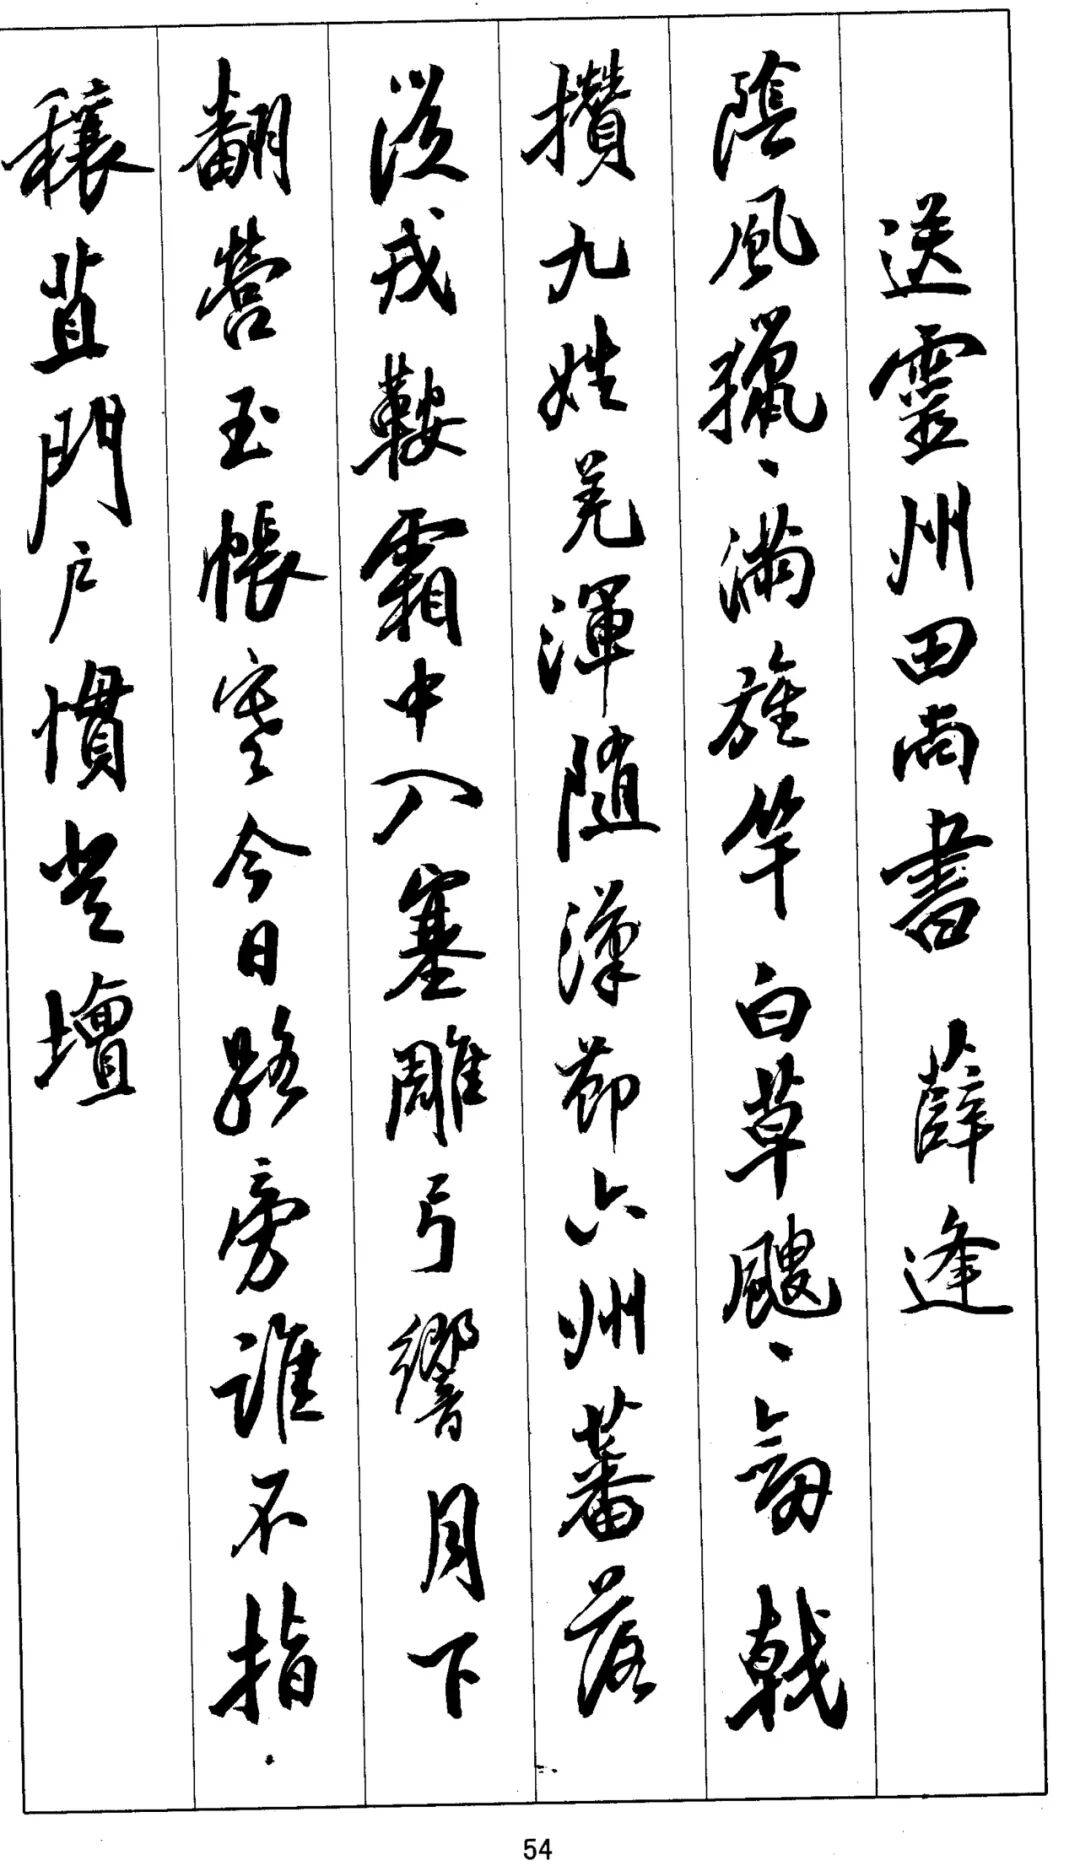 送靈州田尚書 薛逢
陰風獵、滿旌竿白草颼、劍戟
攢九姓羌渾隨漢節六州蕃落
從戎鞍霜中入塞雕弓響月下
翻營玉帳寒今日路旁誰不指
穰苴門户慣登壇
54